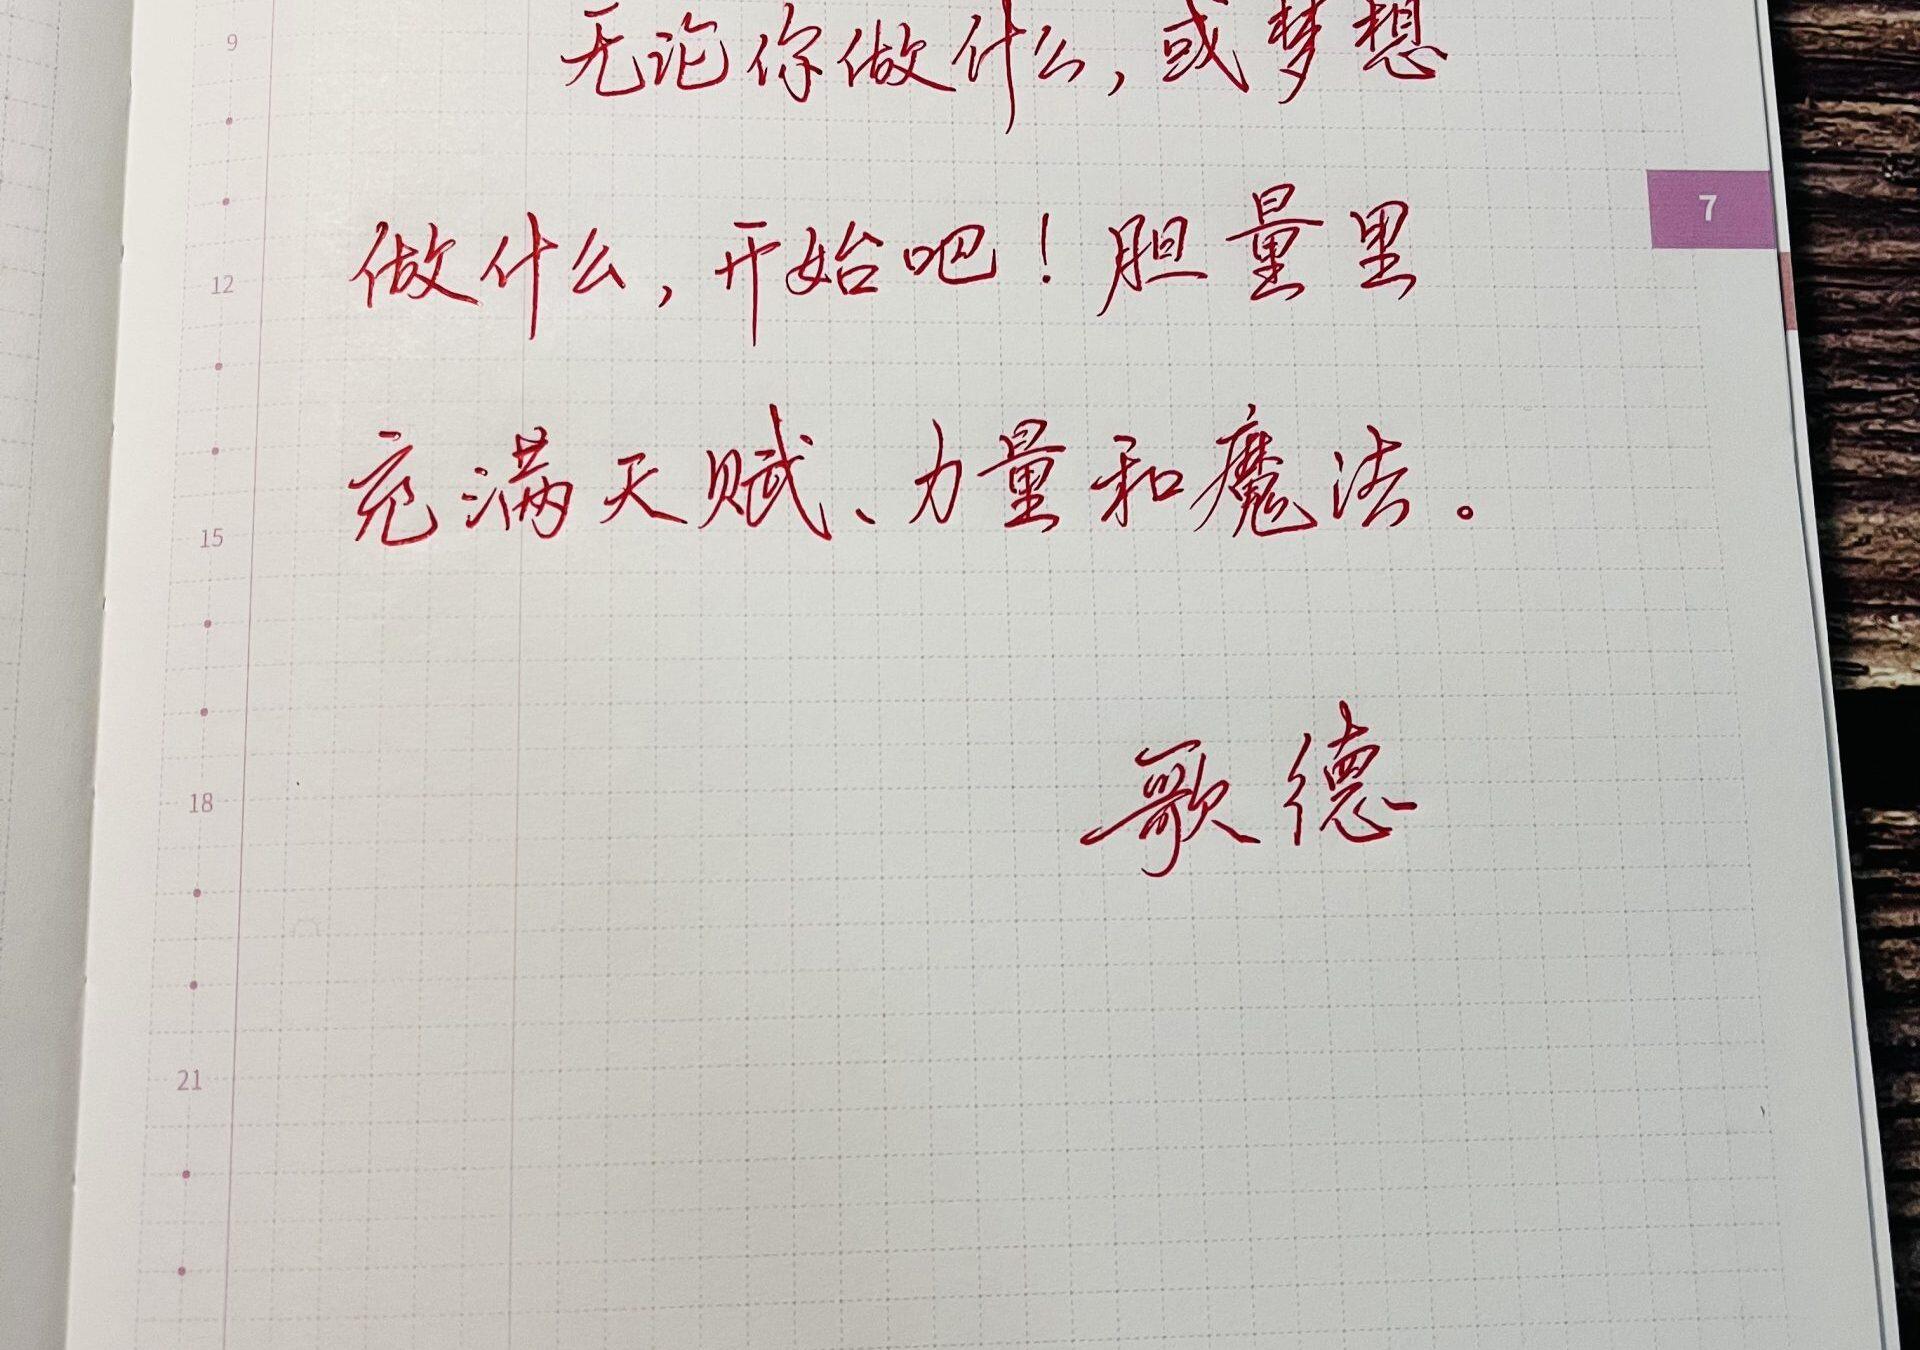 9
无论你做什么，或梦想
7
12
做什么，开始吧！胆量里
15
充满天赋、力量和魔法。
18
歌德
21